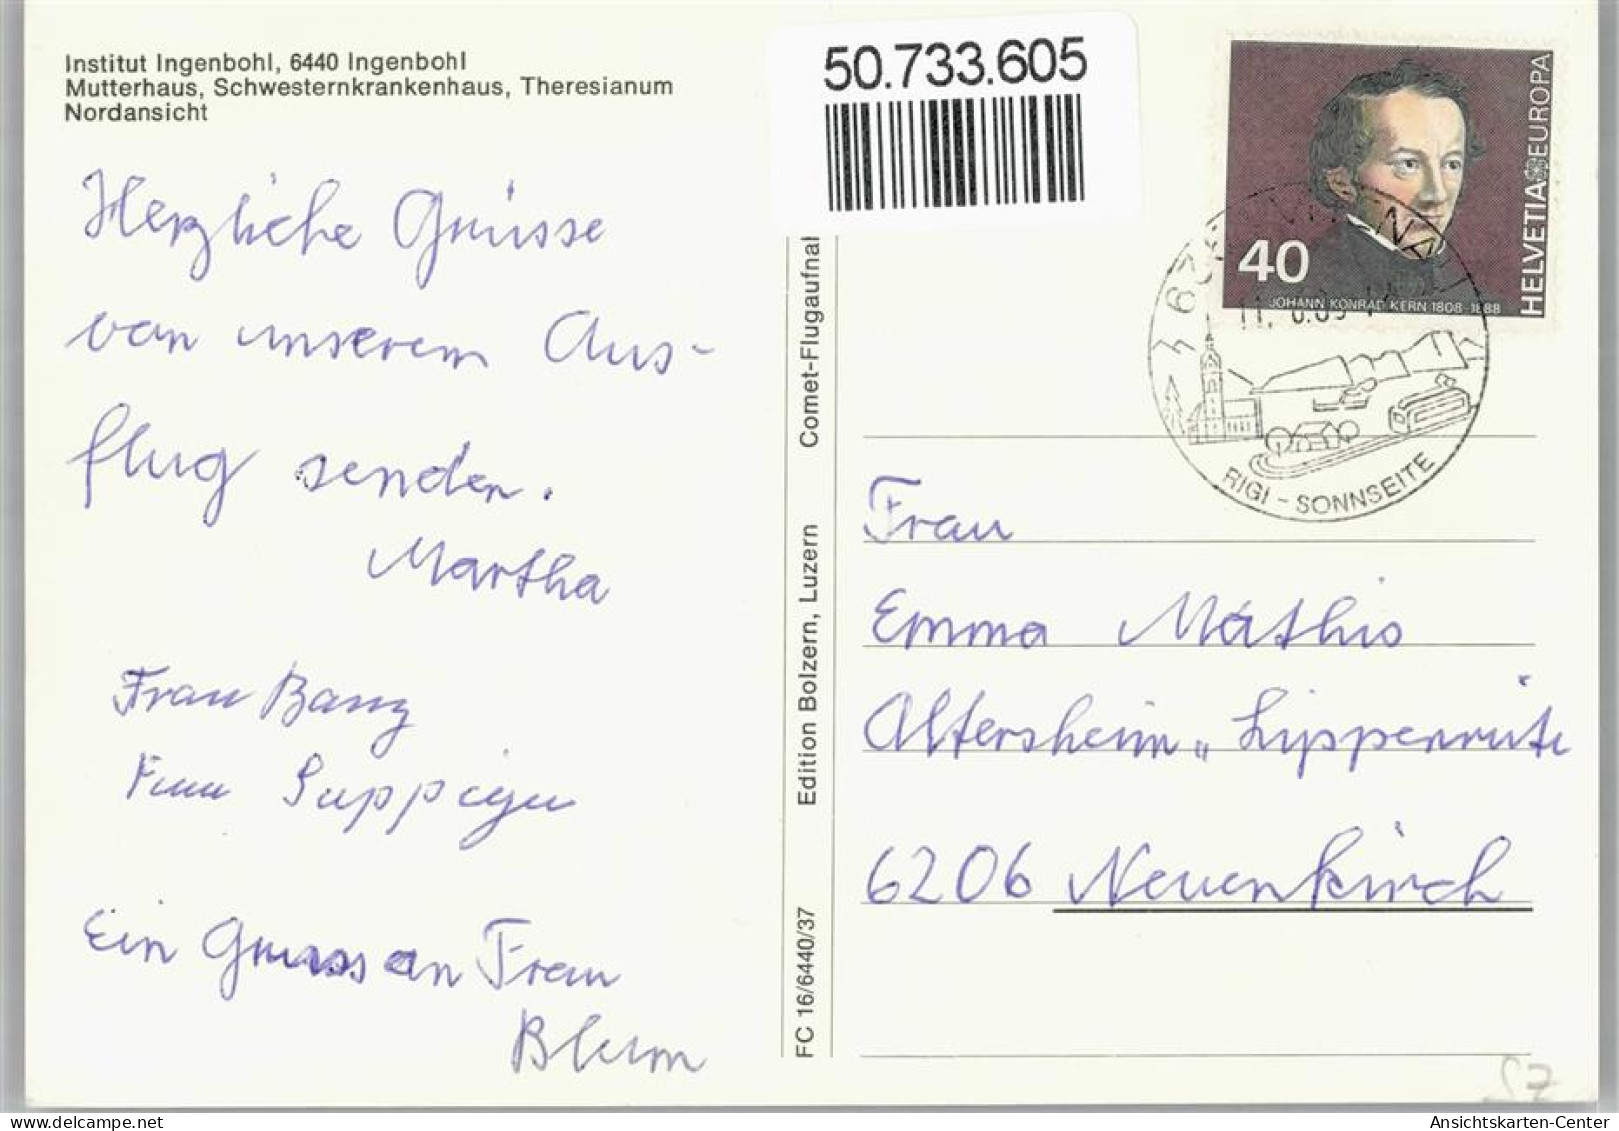 Institut Ingenbohl, 6440 Ingenbohl
Mutterhaus, Schwesternkrankenhaus, Theresianum
Nordansicht
Herzliche Grüsse
von unserem Aus-
flug senden.
Martha
Frau Banz
Frau Suppiger
Ein Gruss an Frau
Blum
50.733.605
FC 16/6440/37
Edition Bolzern, Luzern
Comet-Flugaufnal
HELVETIA EUROPA
40
JOHANN KONRAD KERN 1808-1888
RIGI - SONNSEITE
Frau
Emma Mathis
Altersheim „Lippenrüti
6206 Neuenkirch
SZ
Ansichtskarten-Center